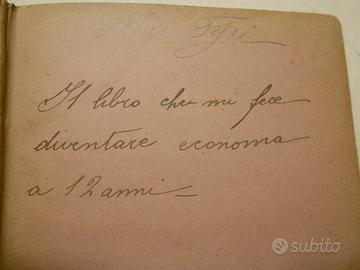 Il libro che mi fece
diventare economa
a 12 anni =
subito